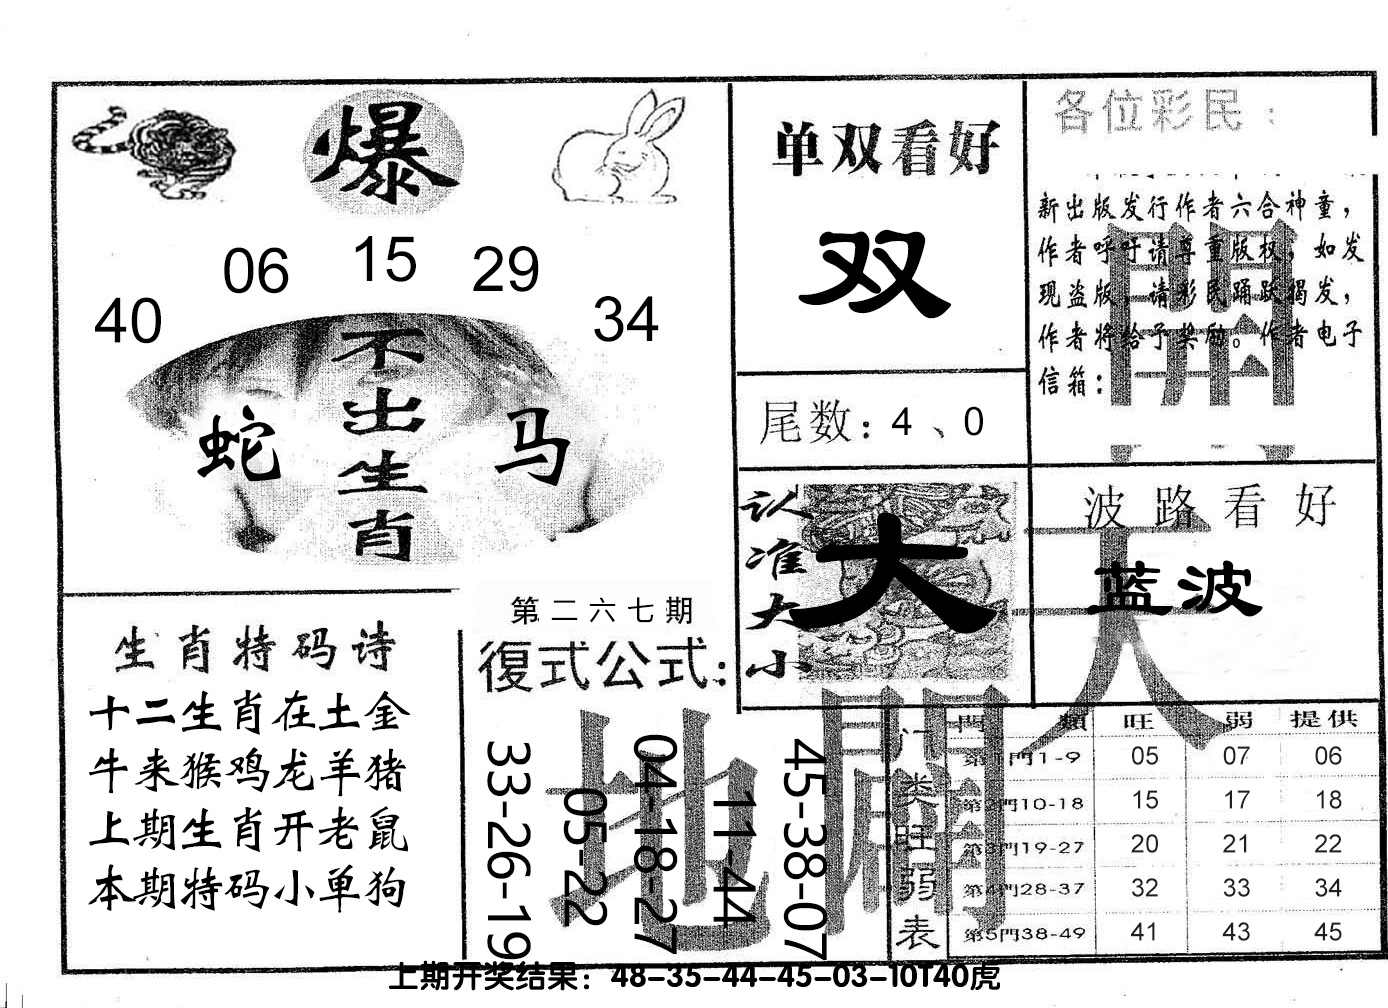 爆
06 15 29
40 34
不出生肖
蛇 马
单双看好
双
尾数：4、0
各位彩民：
新出版发行作者六合神童，
作者呼吁请尊重版权，如发
现盗版，请彩民踊跃揭发，
作者将给予奖励。作者电子
信箱：
開
认准大小
大
波路看好
蓝波
天
生肖特码诗
十二生肖在土金
牛来猴鸡龙羊猪
上期生肖开老鼠
本期特码小单狗
第二六七期
復式公式：
33-26-19
05-22
04-18-27
11-44
45-38-07
地
開
门类旺弱表
門類 旺 弱 提供
第1門1-9 05 07 06
第2門10-18 15 17 18
第3門19-27 20 21 22
第4門28-37 32 33 34
第5門38-49 41 43 45
上期开奖结果：48-35-44-45-03-10T40虎